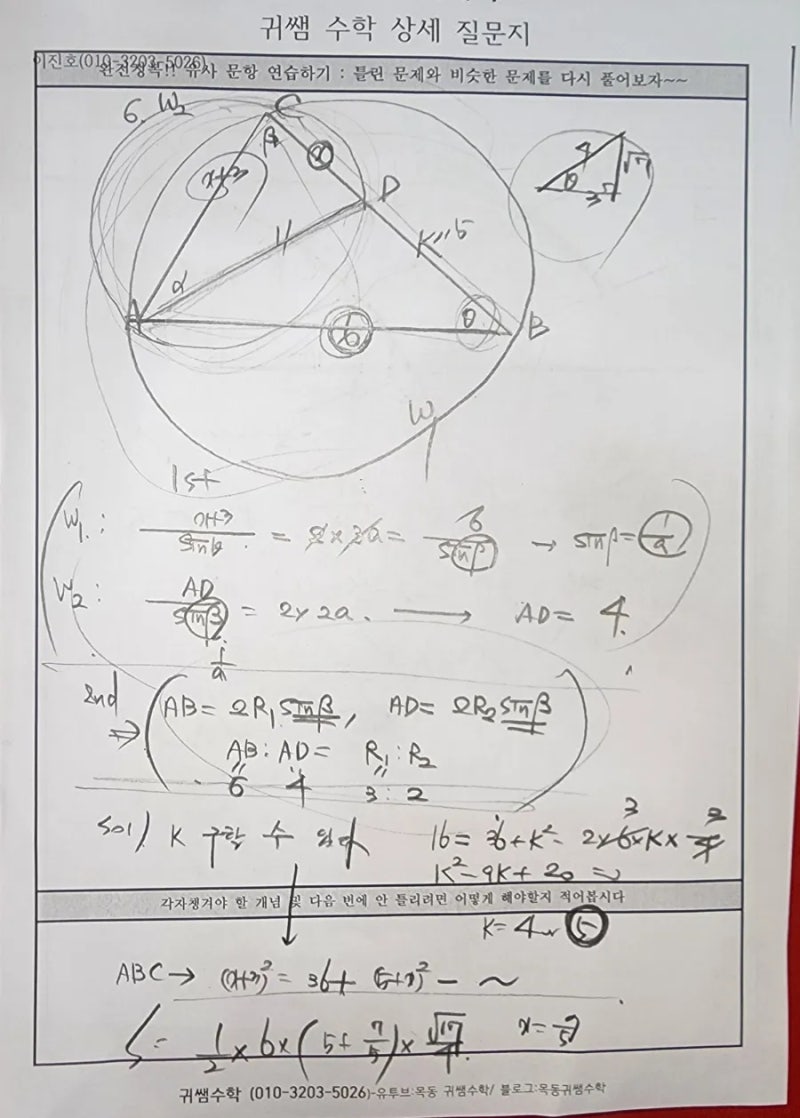 귀쌤 수학 상세 질문지
이진호(010-3203-5026)
완전정복!! 유사 문항 연습하기 : 틀린 문제와 비슷한 문제를 다시 풀어보자~~
6. W₂
C
β
x
x+3
D
4
K=5
α
A
6
θ
B
W₁
4
√7
θ
3
1st
W₁ : x+3/sinθ = 2×3a = 6/sinβ → sinβ = 1/a
W₂ : AD/sinβ = 2×2a. → AD = 4.
1/a
2nd ⇒ AB = 2R₁ sinβ, AD = 2R₂ sinβ
AB : AD = R₁ : R₂
6 4 3 : 2
sol) K 구할 수 있다
16 = 36+K²- 2×6×K×3/4
3
K²-9K+20 =0
각자챙겨야 할 개념 및 다음 번에 안 틀리려면 어떻게 해야할지 적어봅시다
K= 4 or 5
ABC → (x+3)² = 36+ (5+x)² - ~
S = 1/2 × 6 × (5+ 7/5) × √7/4
x = 7/5
귀쌤수학 (010-3203-5026)-유투브:목동 귀쌤수학/ 블로그:목동귀쌤수학